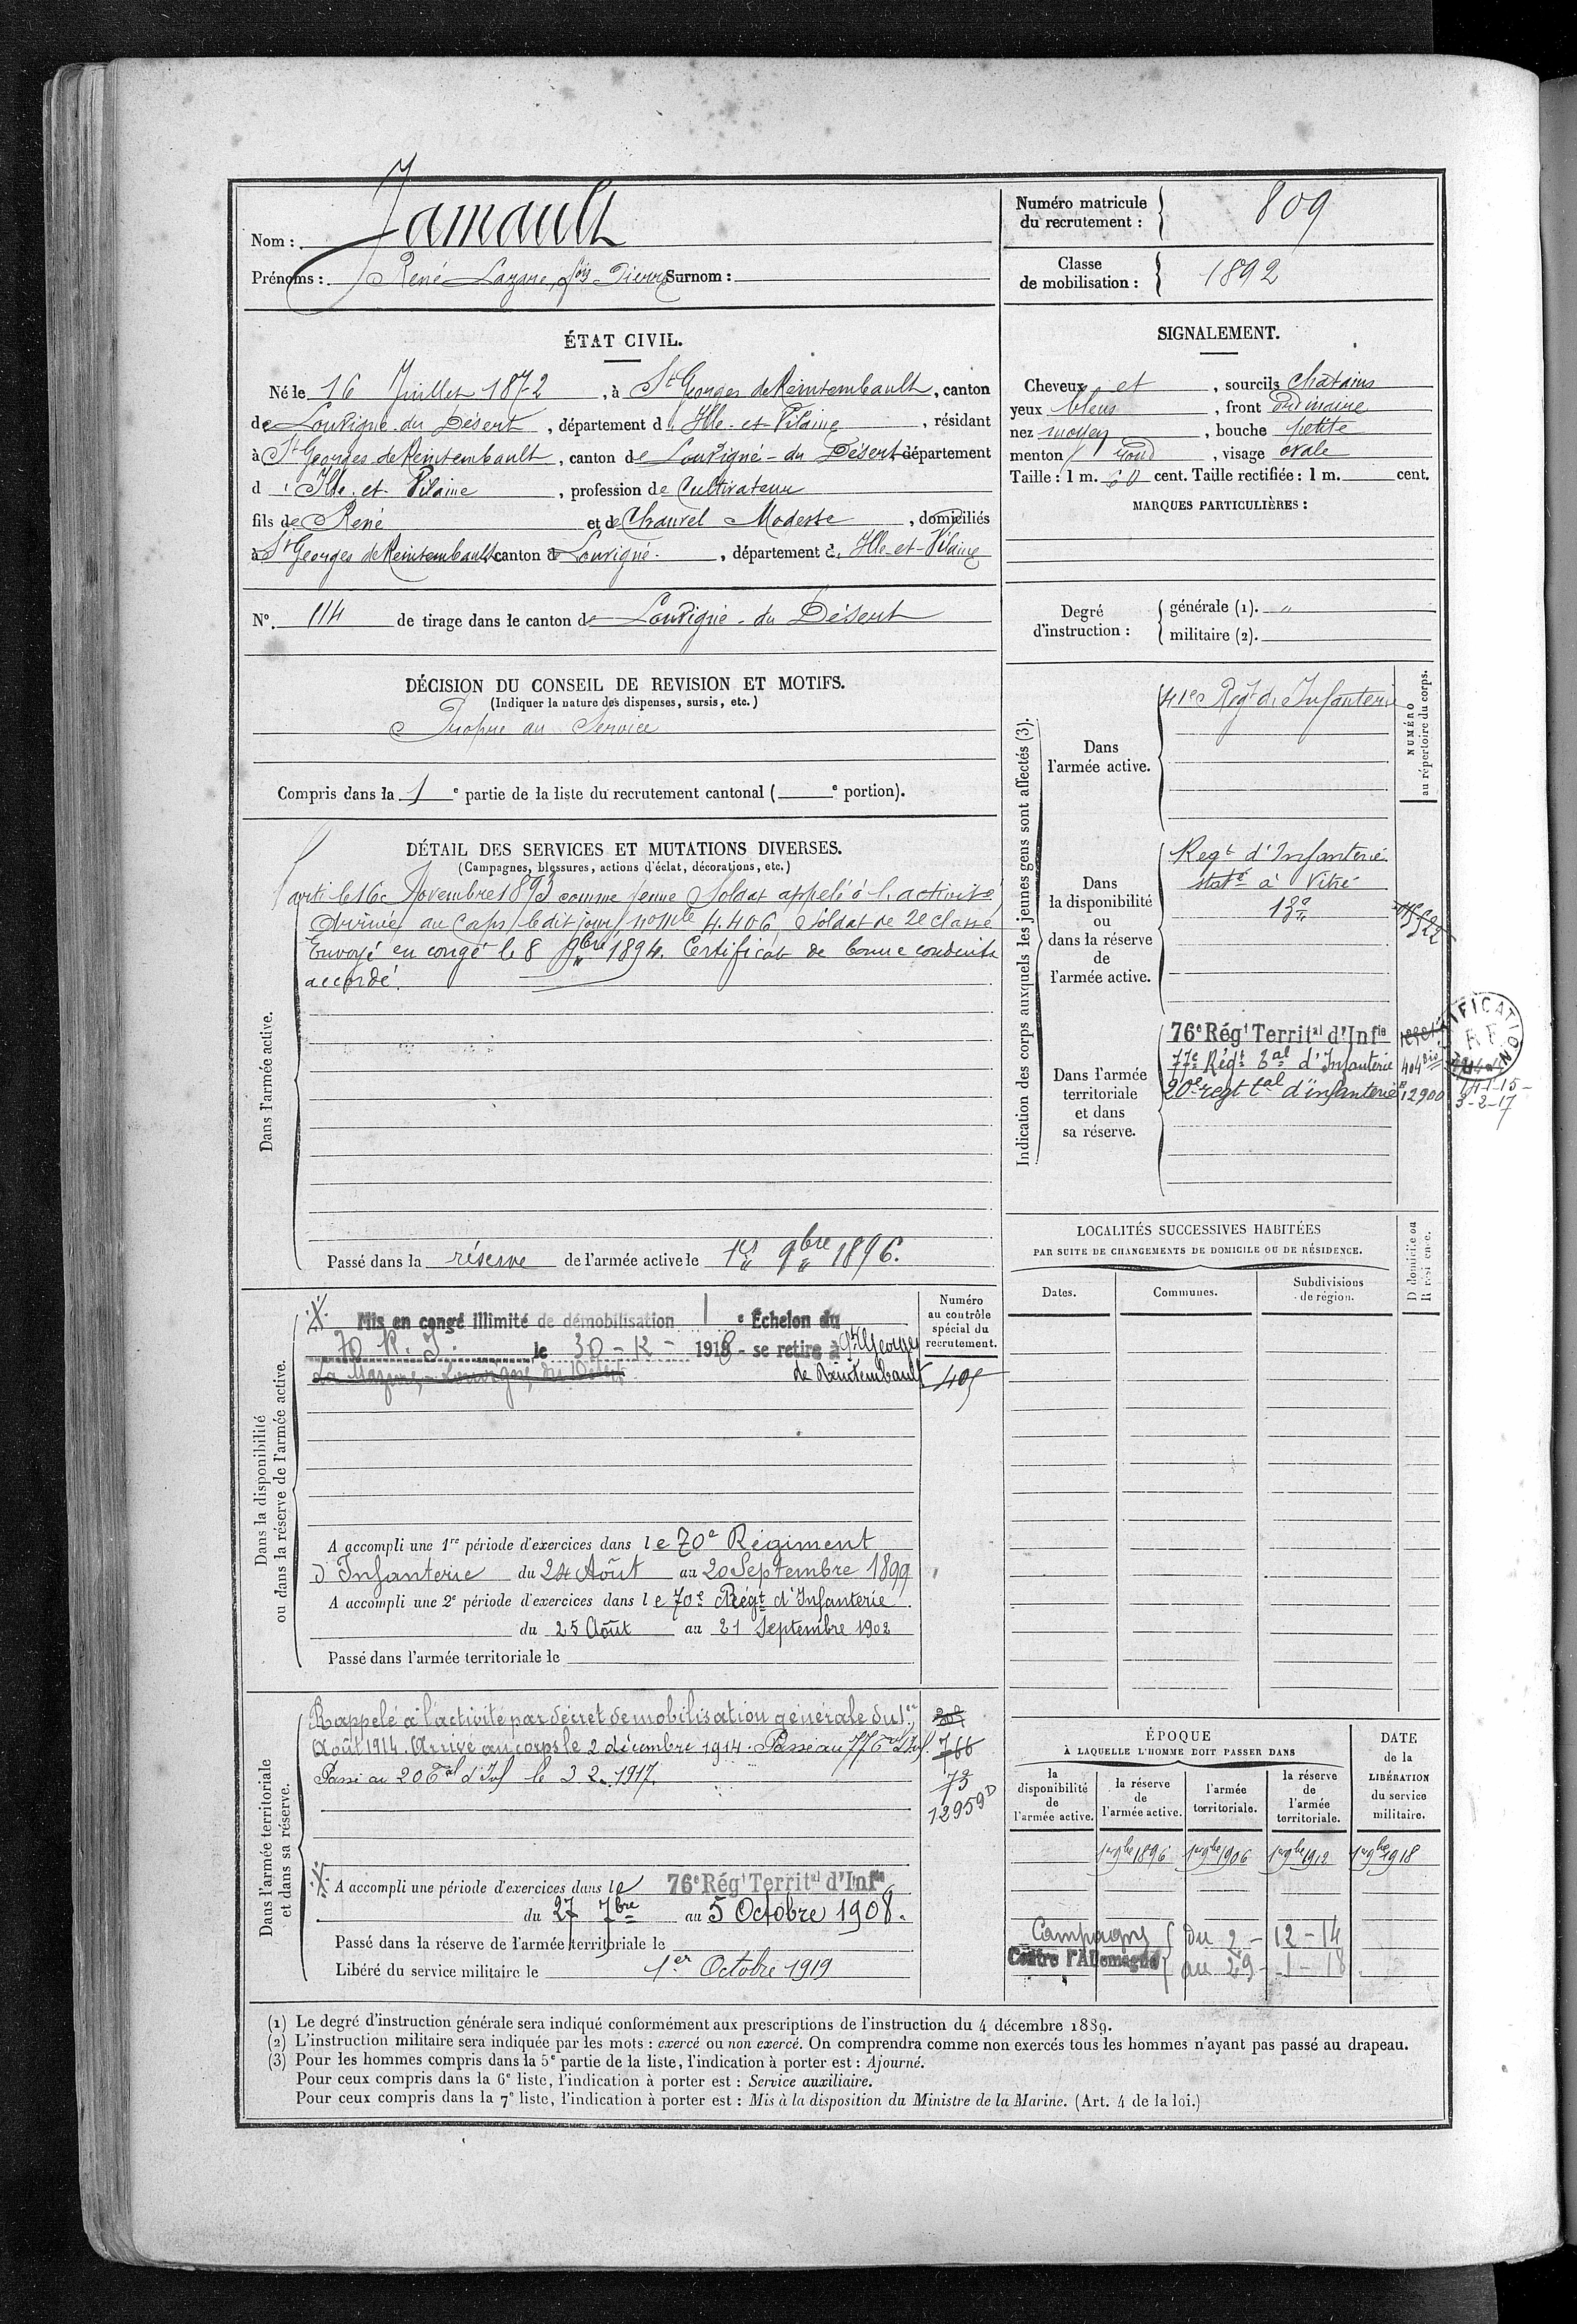 Nom : Jamault
Prénoms : René Lazare, fois Pierre Surnom :
Numéro matricule
du recrutement : 809
Classe
de mobilisation : 1892
ÉTAT CIVIL.
Né le 16 Juillet 1872, à St Georges de Reintembault, canton
de Louvigné du Désert, département d'Ille-et-Vilaine, résidant
à St Georges de Reintembault, canton de Louvigné-du Désert département
d'Ille-et-Vilaine, profession de Cultivateur
fils de René et de Chauvel Modeste, domiciliés
à St Georges de Reintembault canton de Louvigné, département d'Ille-et-Vilaine
N° 114 de tirage dans le canton de Louvigné-du Désert
SIGNALEMENT.
Cheveux et, sourcils chatains
yeux bleus, front ordinaire
nez moyen, bouche petite
menton rond, visage ovale
Taille : 1 m. 60 cent. Taille rectifiée : 1 m. cent.
MARQUES PARTICULIÈRES :
Degré
d'instruction :
générale (1). "
militaire (2).
DÉCISION DU CONSEIL DE REVISION ET MOTIFS.
(Indiquer la nature des dispenses, sursis, etc.)
Propre au Service
Compris dans la 1e partie de la liste du recrutement cantonal ( e portion).
DÉTAIL DES SERVICES ET MUTATIONS DIVERSES.
(Campagnes, blessures, actions d'éclat, décorations, etc.)
Dans l'armée active.
Parti le 16 Novembre 1893 comme jeune Soldat appelé à l'activité
Arrivé au Corps ledit jour, nomle 4.406, Soldat de 2e classe
Envoyé en congé le 8 9bre 1894. Certificat de bonne conduite
accordé.
Passé dans la réserve de l'armée active le 1er 9bre 1896.
Indication des corps auxquels les jeunes gens sont affectés (3).
NUMÉRO
au répertoire du corps.
Dans
l'armée active.
41es Regt d'Infanterie
Dans
la disponibilité
ou
dans la réserve
de
l'armée active.
Regt d'Infanterie
staté à Vitré
13e
Dans l'armée
territoriale
et dans
sa réserve.
76e Régt Territal d'Infie
77e Régt Tal d'Infanterie 404 bis
20e regt tal d'infanterie 12900
3-2-17
LOCALITÉS SUCCESSIVES HABITÉES
PAR SUITE DE CHANGEMENTS DE DOMICILE OU DE RÉSIDENCE.
Dates.
Communes.
Subdivisions
de région.
D domicile ou
R résidence.
Dans la disponibilité
ou dans la réserve de l'armée active.
Numéro
au contrôle
spécial du
recrutement.
Mis en congé illimité de démobilisation 1 e Échelon du
70 R. I. le 30-12-1918 - se retire à St Georges
de Reintembault
405
A accompli une 1re période d'exercices dans le 70e Régiment
d'Infanterie du 24 Août au 20 Septembre 1899
A accompli une 2e période d'exercices dans le 70e Régt d'Infanterie
du 25 Août au 21 Septembre 1902
Passé dans l'armée territoriale le
Dans l'armée territoriale
et dans sa réserve.
Rappelé à l'activité par décret de mobilisation générale du 1er
Août 1914. Arrivé au corps le 2 décembre 1914. Passé au 77e Tal d'Inf
Passé au 20 Tal d'Inf le 3.2.1917.
766
12959 D
A accompli une période d'exercices dans le 76e Régt Territal d'Infie
du 27 7bre au 5 Octobre 1908.
Passé dans la réserve de l'armée territoriale le
Libéré du service militaire le 1er Octobre 1919
ÉPOQUE
À LAQUELLE L'HOMME DOIT PASSER DANS
la
disponibilité
de
l'armée active.
la réserve
de
l'armée active.
l'armée
territoriale.
la réserve
de
l'armée
territoriale.
DATE
de la
LIBÉRATION
du service
militaire.
1er 9bre 1896 1er 9bre 1906 1er 9bre 1912 1er 9bre 1918
Campagne du 2-12-14
Contre l'Allemagne au 29-1-18
(1) Le degré d'instruction générale sera indiqué conformément aux prescriptions de l'instruction du 4 décembre 1889.
(2) L'instruction militaire sera indiquée par les mots : exercé ou non exercé. On comprendra comme non exercés tous les hommes n'ayant pas passé au drapeau.
(3) Pour les hommes compris dans la 5e partie de la liste, l'indication à porter est : Ajourné.
Pour ceux compris dans la 6e liste, l'indication à porter est : Service auxiliaire.
Pour ceux compris dans la 7e liste, l'indication à porter est : Mis à la disposition du Ministre de la Marine. (Art. 4 de la loi.)